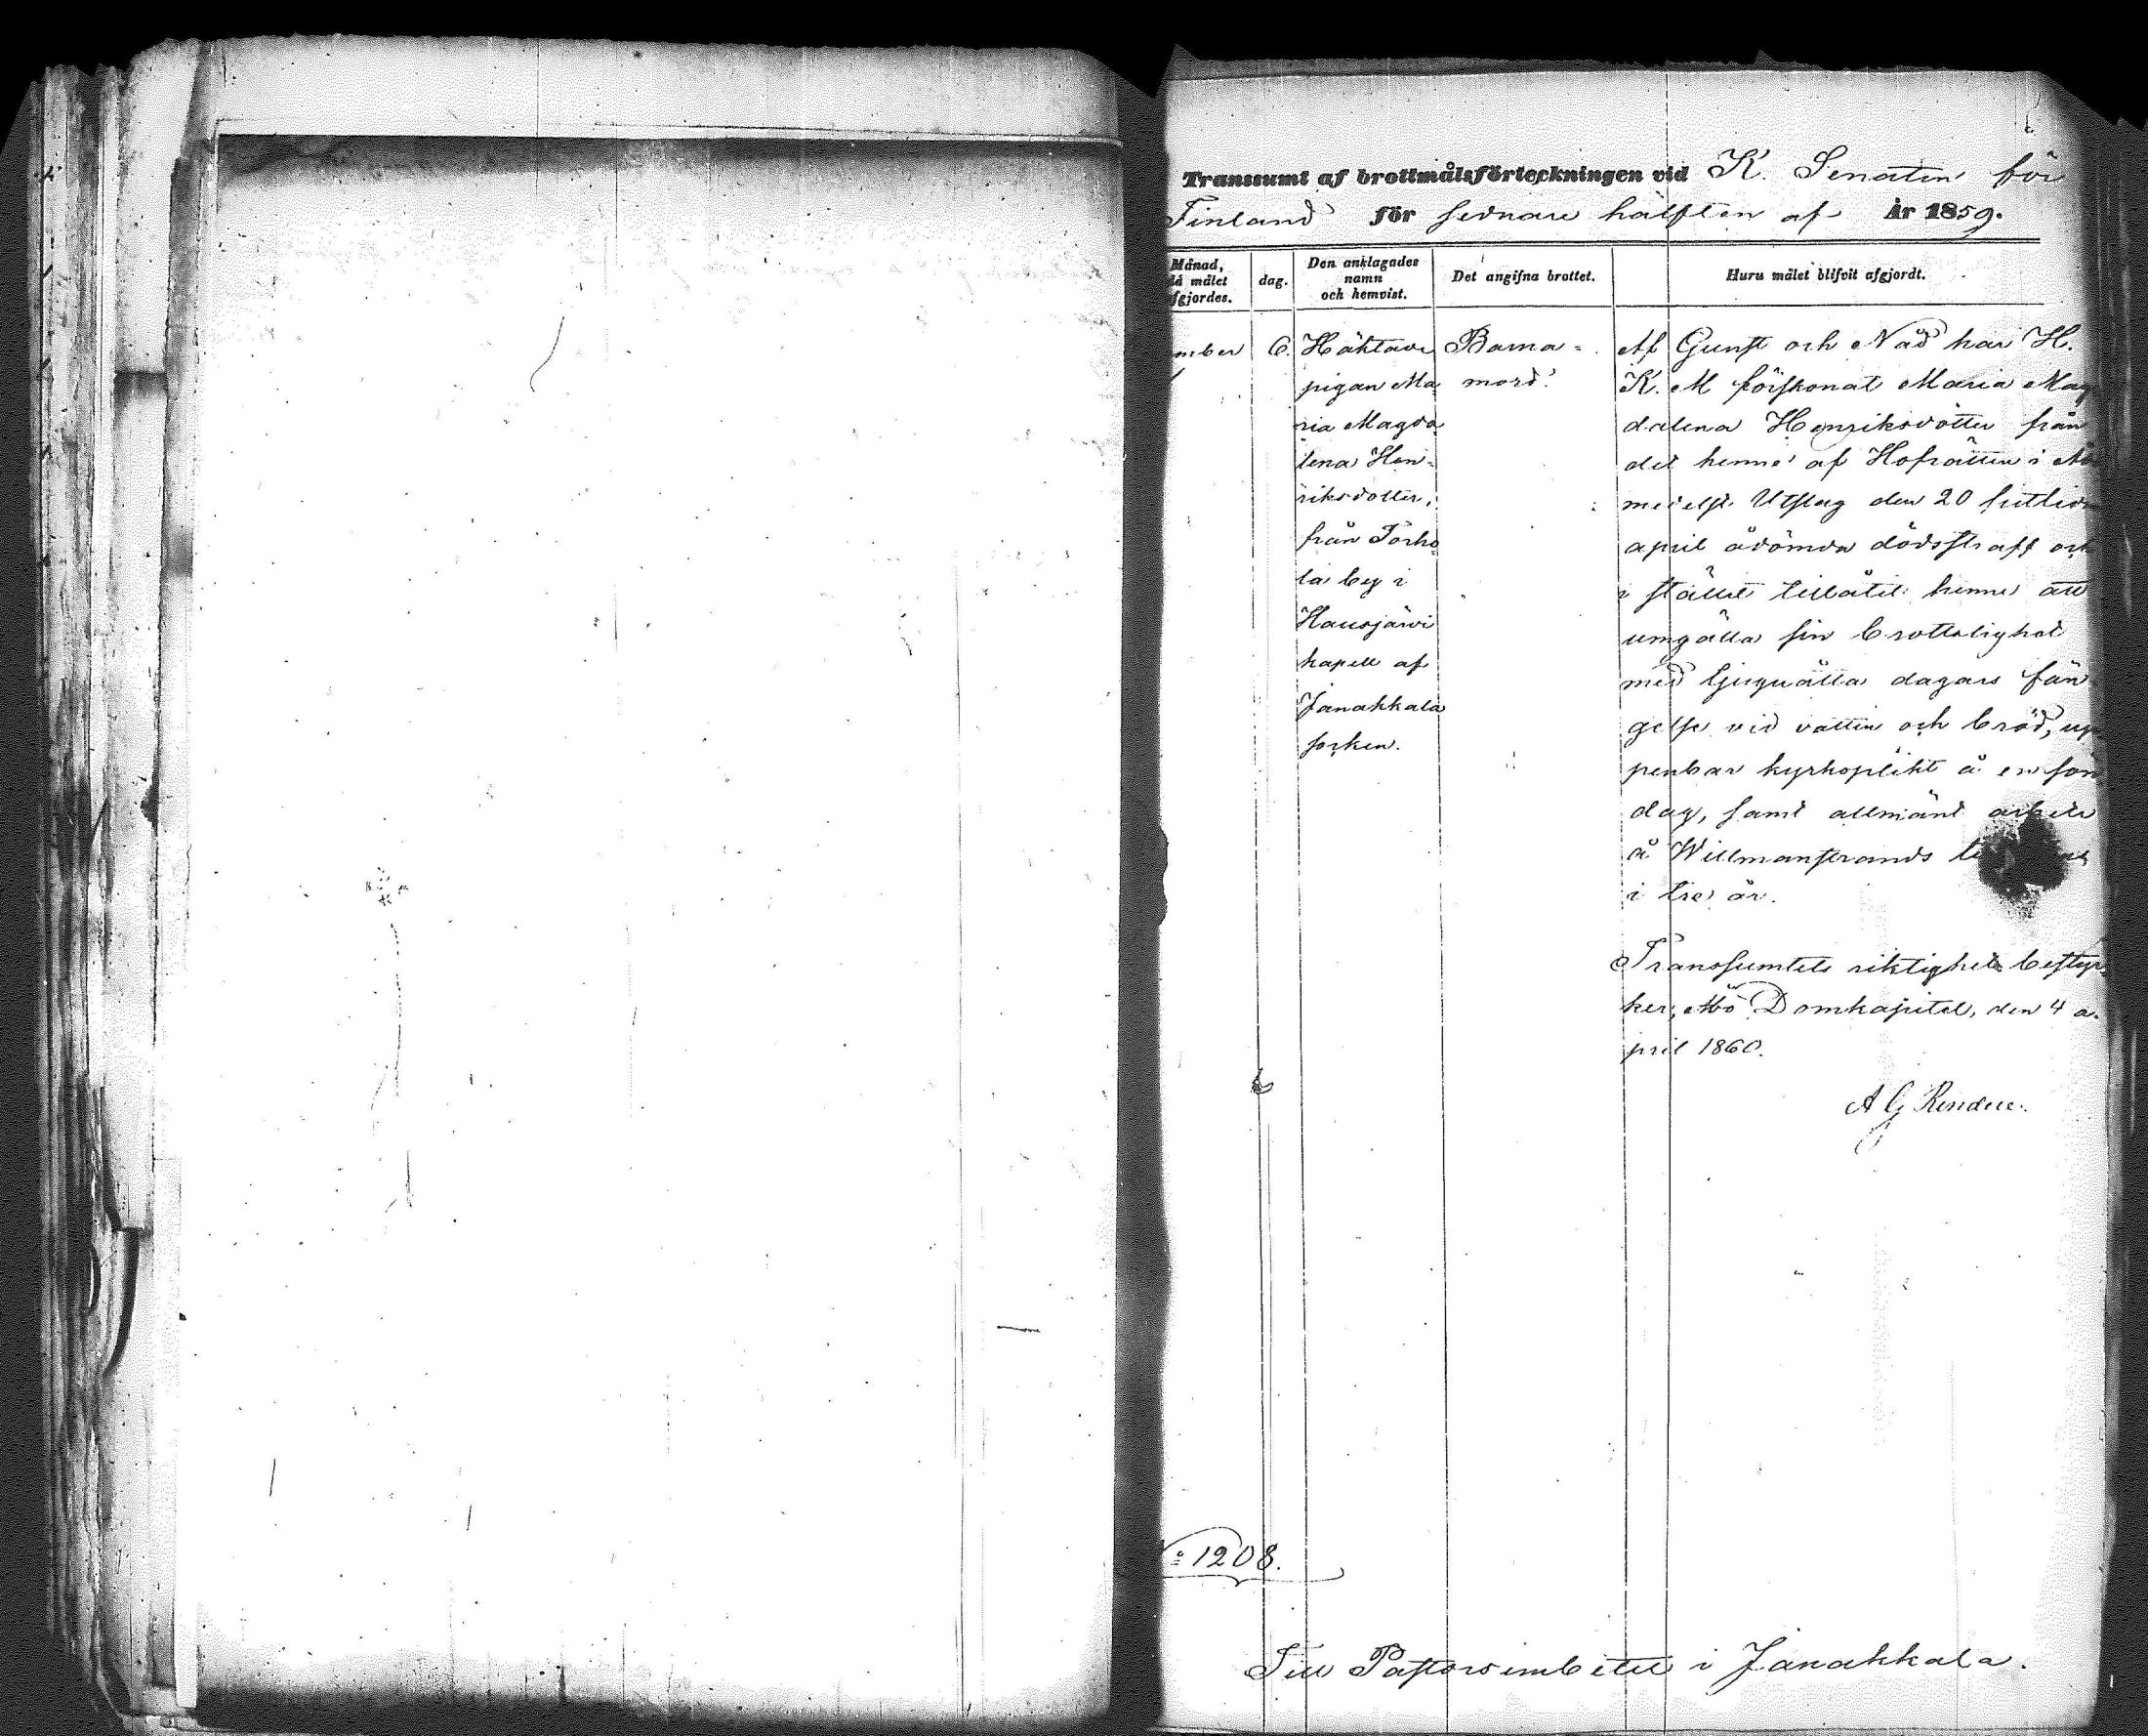 Transsumt af brottmålsförteckningen vid K. Senaten för
Finland för sednare hälften af År 1859.
Månad, då målet afgjordes.
dag.
Den anklagades namn och hemvist.
Det angifna brottet.
Huru målet blifvit afgjordt.
mber 6.
Häktade
pigan Ma
ria Magda
lena Hen-
riksdotter,
från Torho
la by i
Hausjärvi
kapell af
Janakkala
socken.
Barna-
mord.
Af Gunst och Nåd har H.
K. M förskonat Maria Mag
dalena Henriksdotter från
det henne af Hofrätten i Åbo
medelst Utslag den 20 sistlidne
april ådömda dödsstraff och
i stället tillåtit henne att
umgälla sin brottslighet
med tjuguåtta dagars fän
gelse vid vatten och bröd, up
penbar kyrkoplikt å en sön
dag, samt allmänt arbete
å Willmanstrands
i tre år.
Transsumtets riktighet bestyr
ker, Åbo Domkapitel, den 4 a-
pril 1860.
A G
: 1208.
Till Pastorsembetet i Janakkala.